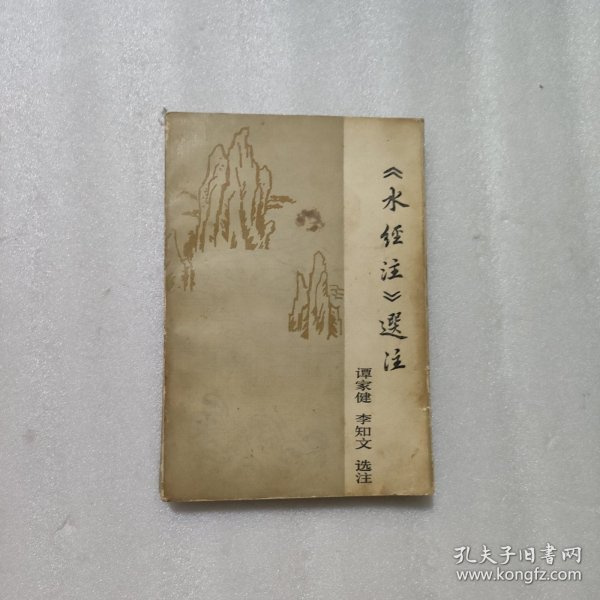 《水經注》選注
谭家健 李知文 选注
孔夫子旧书网
www.kongfz.com